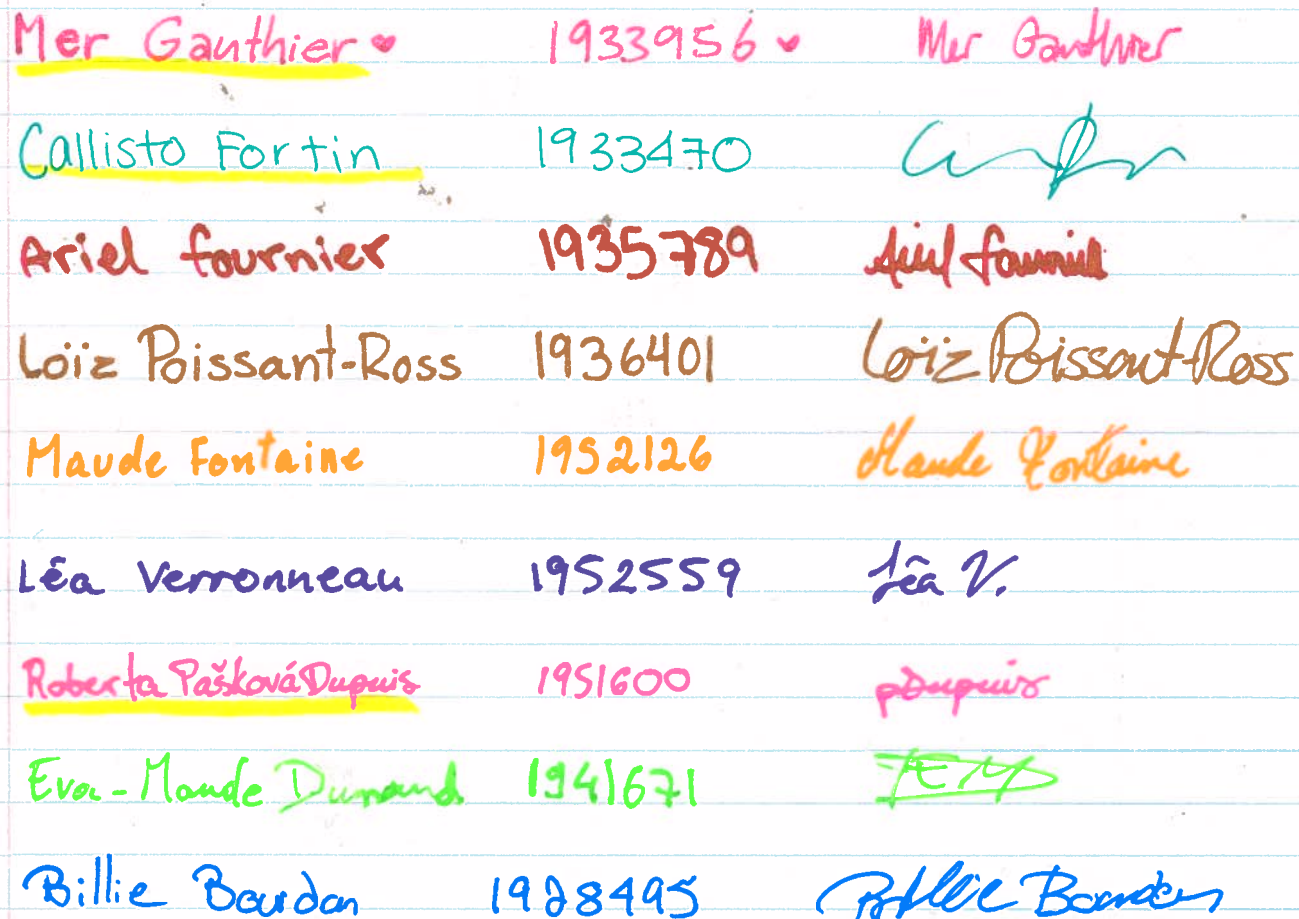 Mer Gauthier ♥ 1933956 ♥ Mer Gauthier
Callisto Fortin 1933470
Ariel fournier 1935789 Ariel fournier
Loïz Poissant-Ross 1936401 Loïz Poissant-Ross
Maude Fontaine 1952126 Maude Fontaine
Léa Verronneau 1952559 Léa V.
Roberta Pašková Dupuis 1951600 pDupuis
Eva-Maude Dumand 1941671 EMD
Billie Bourdon 1928495 Billie Bourdon